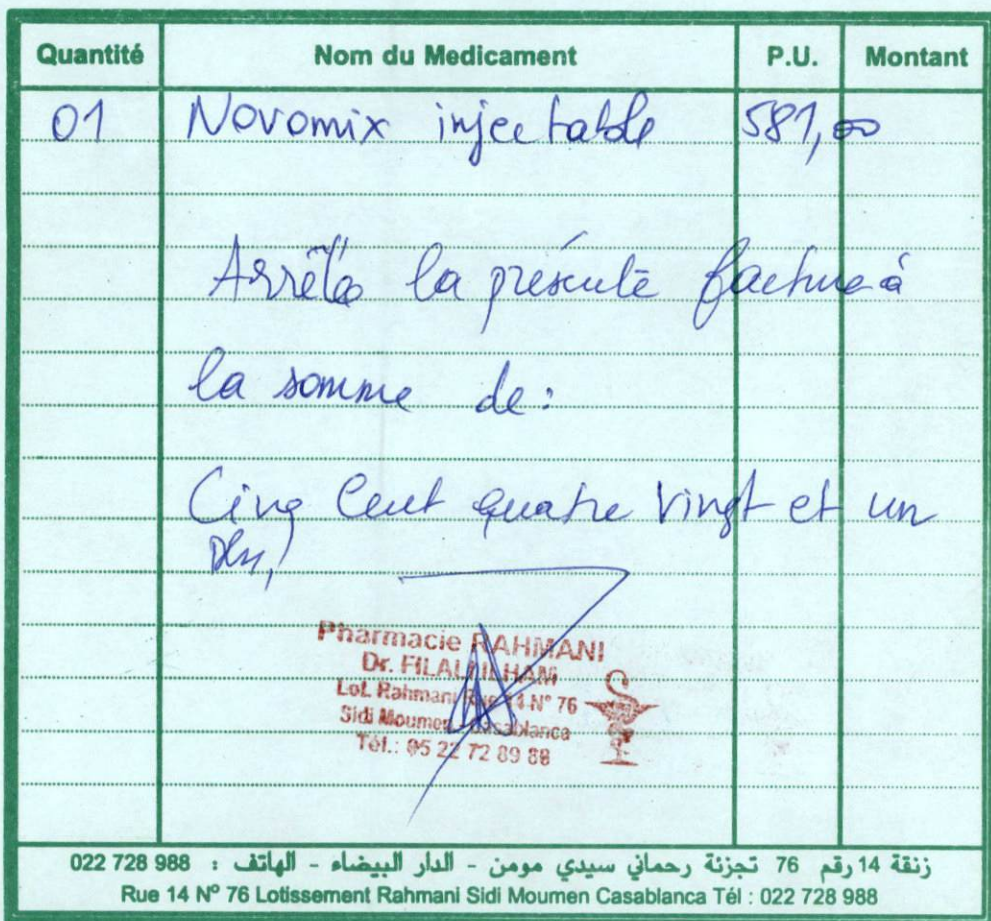 Quantité Nom du Medicament P.U. Montant
01 Novomix injectable 581,00
Arrêtée la présente facture à
la somme de :
Cinq Cent quatre vingt et un
Dhs,
Pharmacie RAHMANI
Dr. FILALI ILHAM
Lot. Rahmani Rue 14 N° 76
Sidi Moumen - Casablanca
Tél.: 05 22 72 89 88
زنقة 14 رقم 76 تجزئة رحماني سيدي مومن - الدار البيضاء - الهاتف : 022 728 988
Rue 14 N° 76 Lotissement Rahmani Sidi Moumen Casablanca Tél : 022 728 988